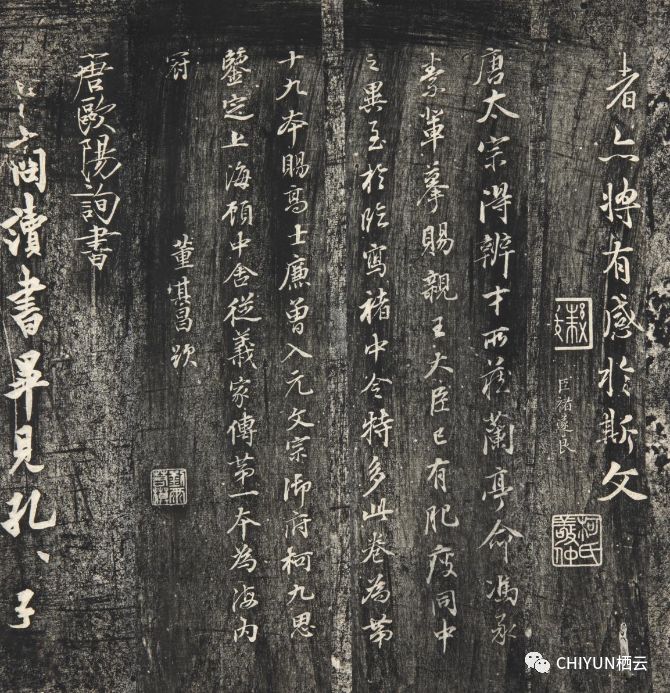 者亦將有感於斯文
臣褚遂良
柯氏敬仲
唐太宗得辨才所藏蘭亭命馮承
素輩摹賜親王大臣已有肥瘦同中
之異至於臨寫褚中令特多此卷為第
十九本賜高士廉曾入元文宗御府柯九思
鑒定上海顧中舍從義家傳第一本為海内
冠
董其昌題
唐歐陽詢書
卜商讀書畢見孔子
CHIYUN栖云